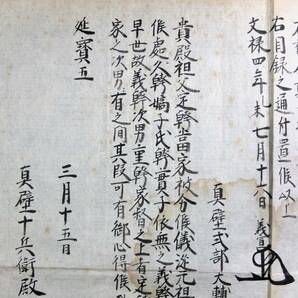 右目録之通付置候以上
文禄四年未七月十六日 義宣
真壁式部大輔
貴殿祖父定幹当家被分候儀従元祖
候処久幹嫡子氏幹實子依無之義幹
早世故義幹次男重幹家督之上者定
家之次男有之間其段可有御心得候
延寶五
三月十五日
真壁十兵衛殿